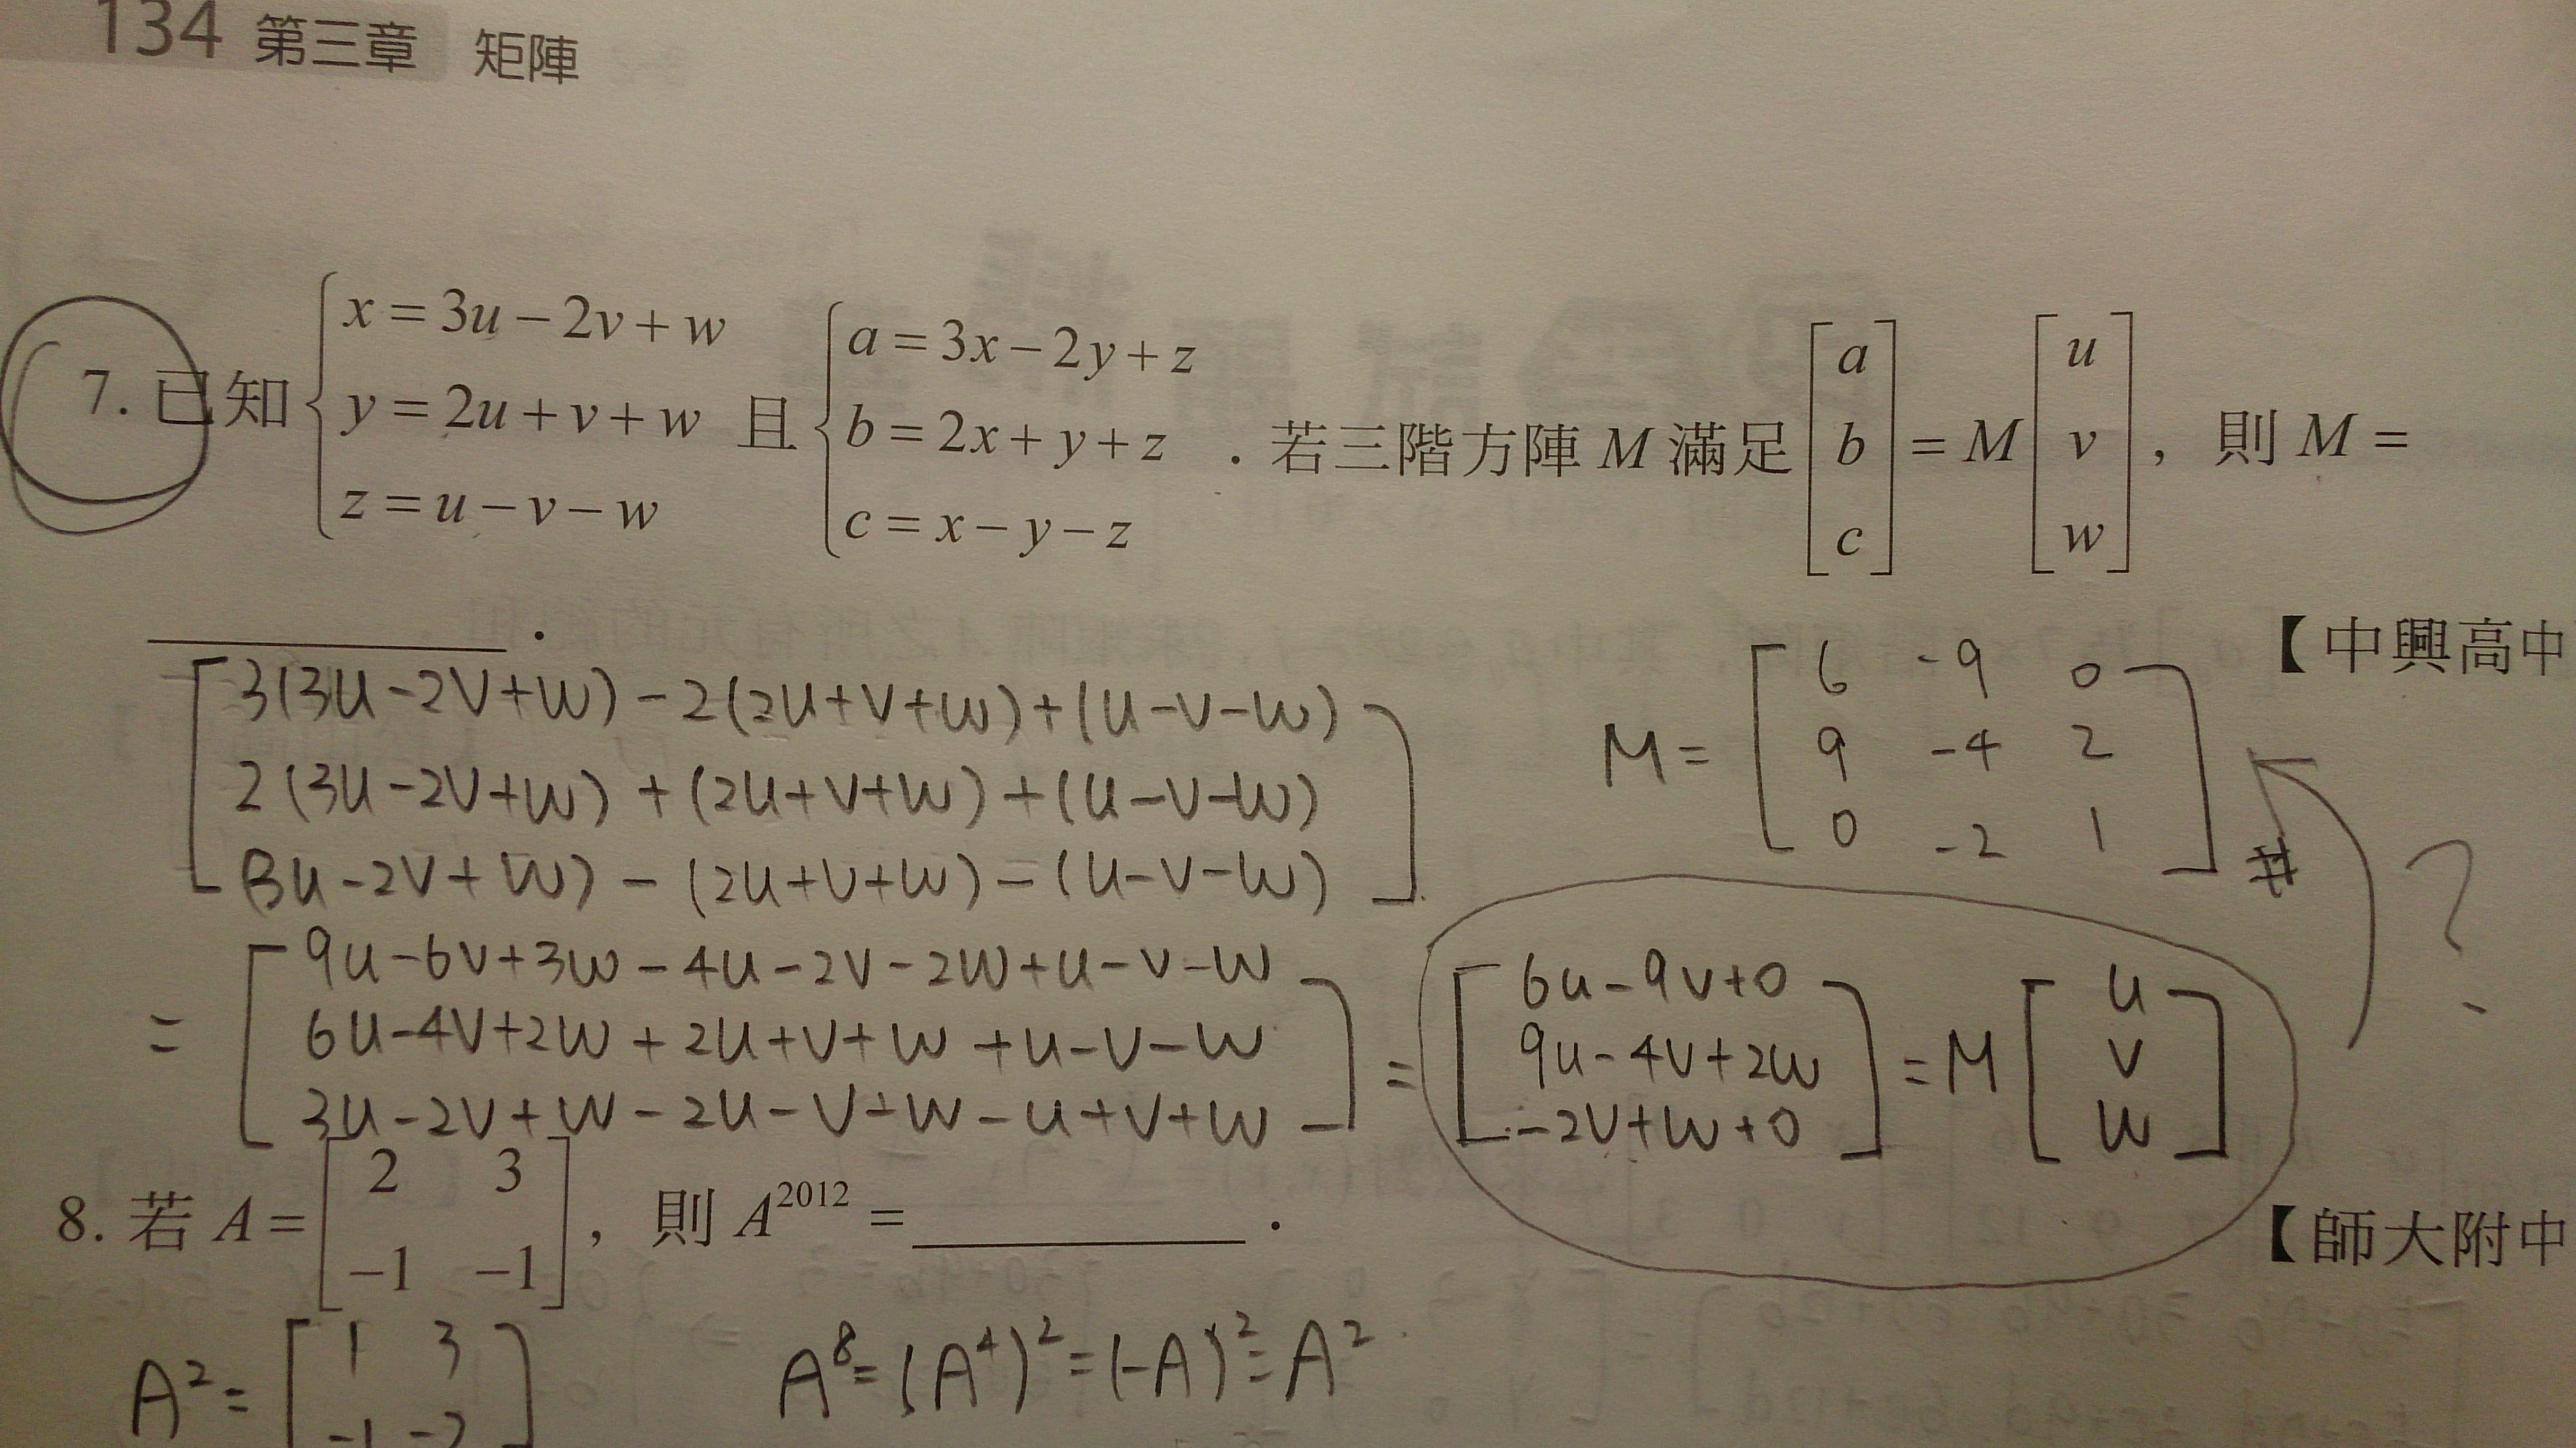 134 第三章 矩陣
7. 已知 { x = 3u − 2v + w, y = 2u + v + w, z = u − v − w 且 { a = 3x − 2y + z, b = 2x + y + z, c = x − y − z . 若三階方陣 M 滿足 [a b c] = M [u v w] , 則 M =
______ .
【中興高中
[ 3(3u−2v+w) − 2(2u+v+w) + (u−v−w)
2(3u−2v+w) + (2u+v+w) + (u−v−w)
(3u−2v+w) − (2u+v+w) − (u−v−w) ]
M = [ 6 −9 0
9 −4 2
0 −2 1 ] #
?
= [ 9u−6v+3w−4u−2v−2w+u−v−w
6u−4v+2w+2u+v+w+u−v−w
3u−2v+w−2u−v−w−u+v+w ]
= [ 6u−9v+0
9u−4v+2w
−2v+w+0 ] = M [ u
v
w ]
8. 若 A = [ 2 3
−1 −1 ] , 則 A^2012 = ______ .
【師大附中
A² = [ 1 3
−1 −2 ]
A⁸ = (A⁴)² = (−A)² = A²